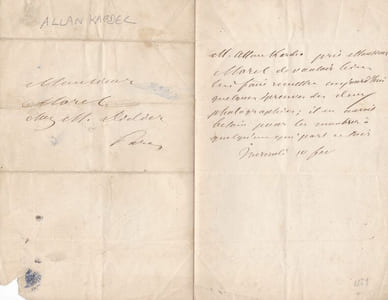 ALLAN KARDEC
Monsieur
Morel
chez M.
Paris
M. Allan Kardec prie Monsieur
Morel de vouloir bien
lui faire remettre aujourd'hui
quelques épreuves des deux
photographies; il en
besoin pour les montrer à
quelqu'un qui part ce soir
Mercredi 10